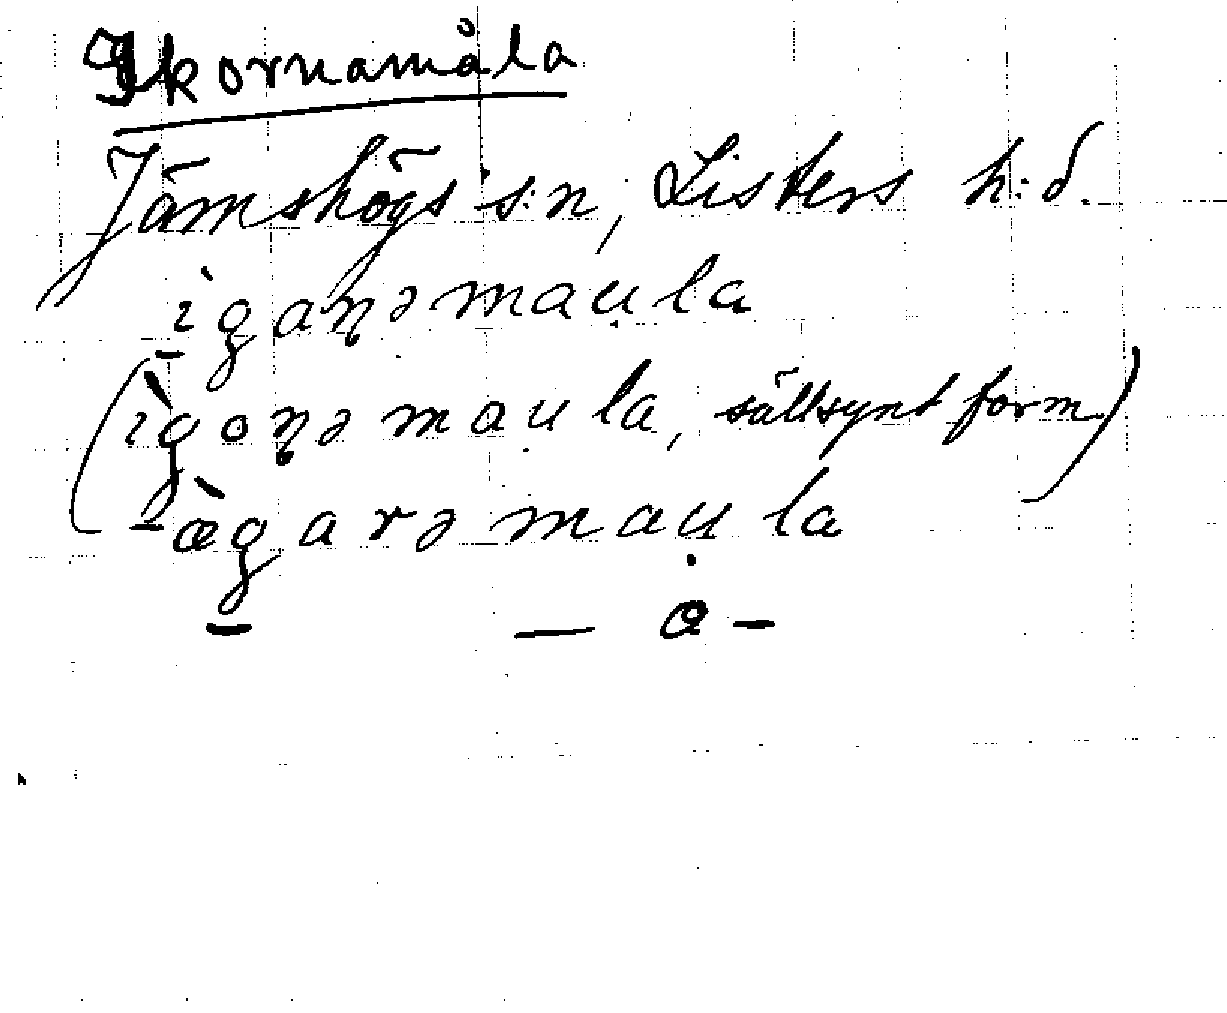 Ikornamåla
Jämshögs s:n, Listers h:d.
ìganəmau̯la
(ìgonəmau̯la, sällsynt form)
æ̀garəmau̯la
— a —